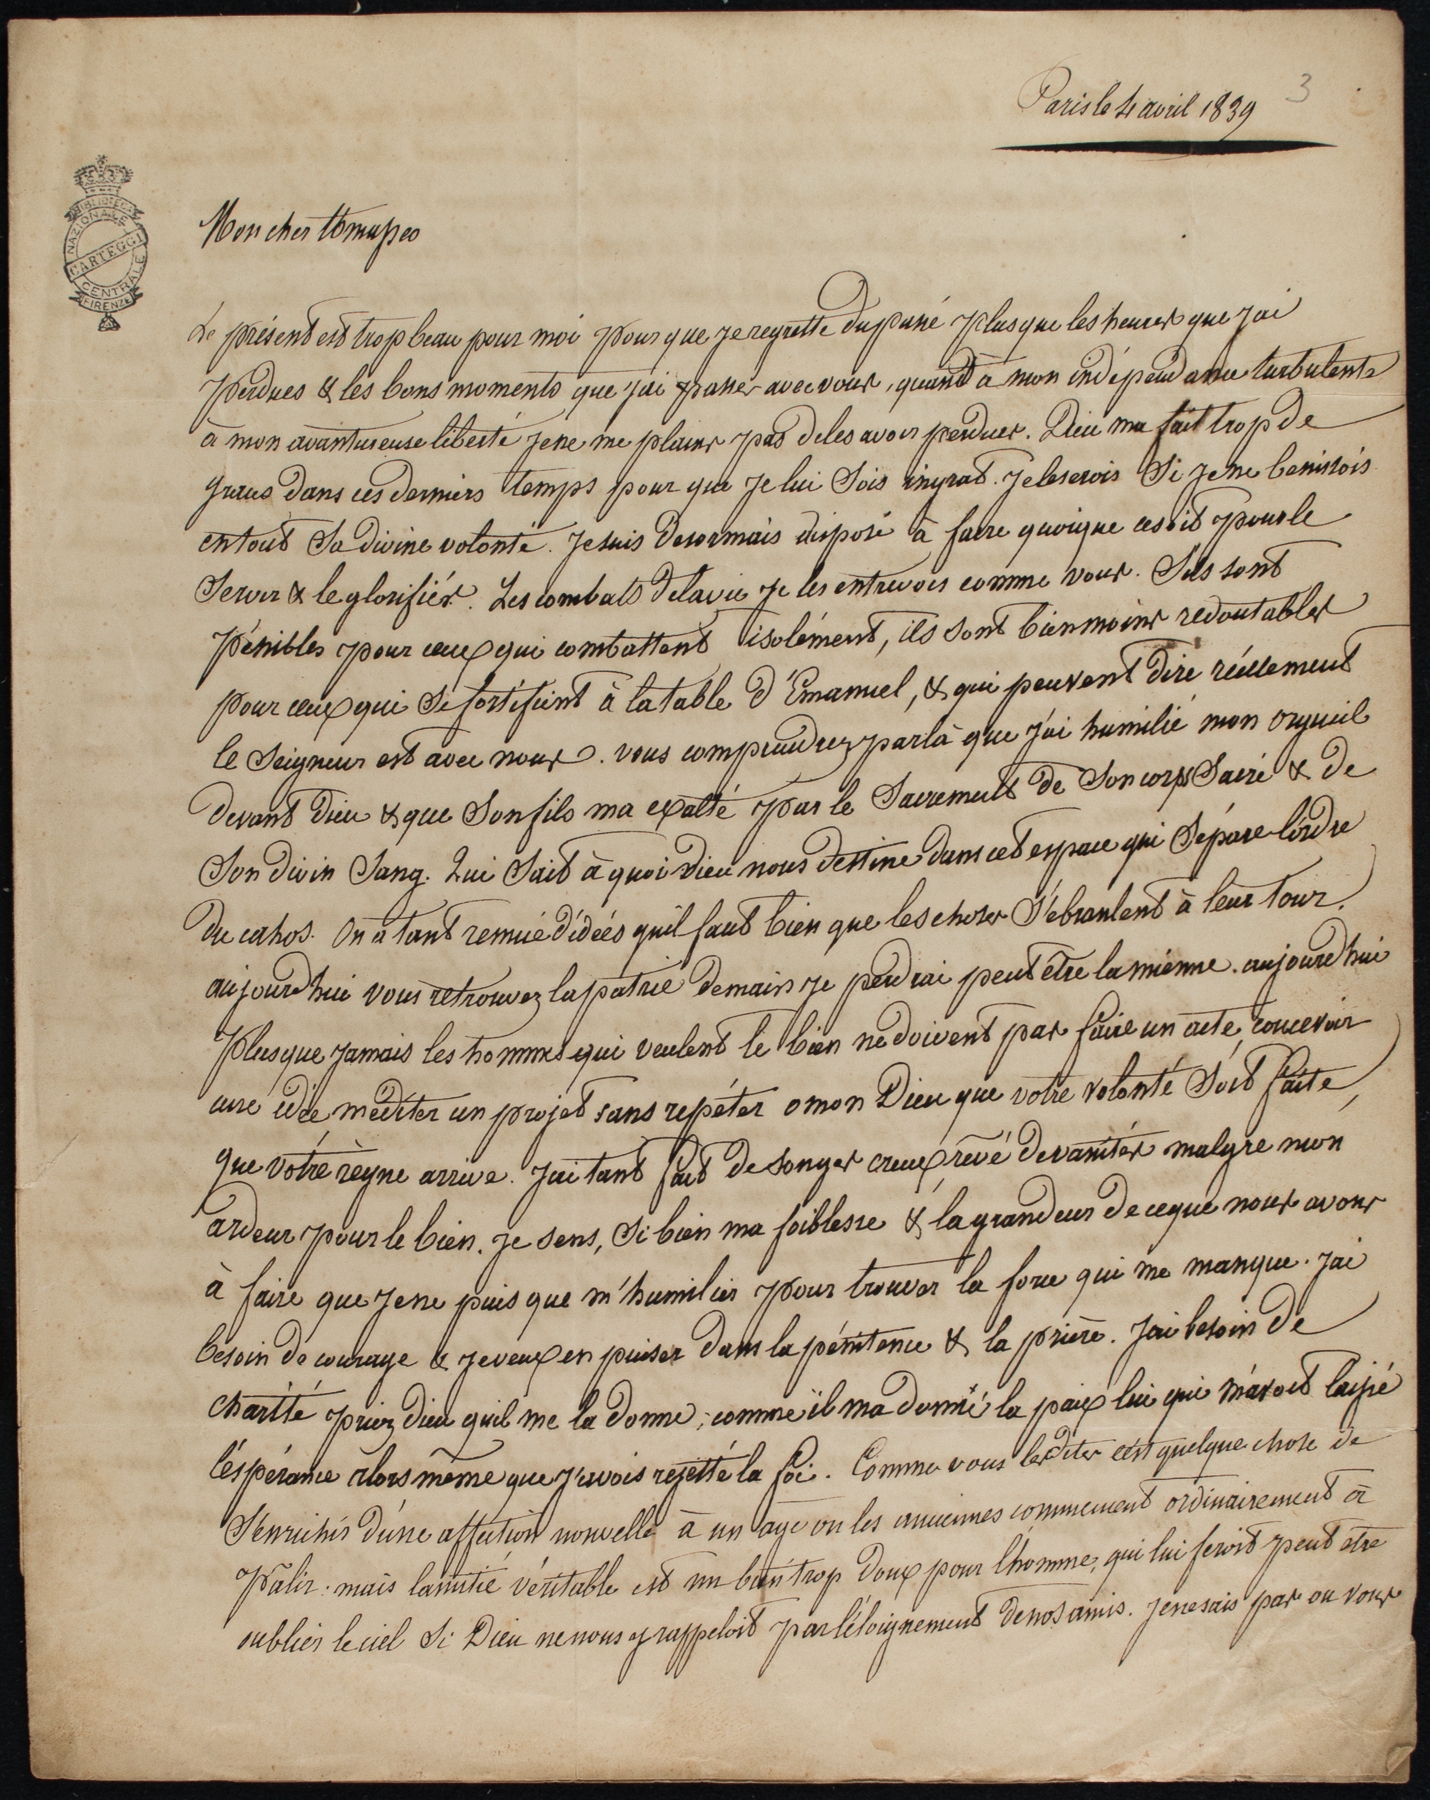 Paris le 4 avril 1839
3
BIBLIOTECA
NAZIONALE
CARTEGGI
CENTRALE
FIRENZE
Mon cher Tomaseo
Le présent est trop beau pour moi pour que je regrette du passé plus que les heures que j'ai
perdues & les bons moments que j'ai passés avec vous, quand à mon indépendance turbulente
à mon avantureuse liberté je ne me plains pas de les avoir perdues. Dieu ma fait trop de
graces dans ces derniers temps pour que je lui sois ingrat. Je le serois si je ne benissois
en tout sa divine volonté. Je suis desormais disposé à faire quoique ce soit pour le
servir & le glorifiér. Les combats de la vie je les entrevois comme vous. S'ils sont
pénibles pour ceux qui combattent isolément, ils sont bien moins redoutables
pour ceux qui se fortifient à la table d'Emanuel, & qui peuvent dire réellement
le Seigneur est avec nous. vous comprendrez par là que j'ai humilié mon orgueil
devant Dieu & que son fils ma exalté par le Sacrement de son corps Sacré & de
son divin Sang. Qui sait à quoi Dieu nous destine dans cet espace qui sépare l'ordre
du cahos. On a tant remué d'idées qu'il faut bien que les choses s'ebranlent à leur tour.
aujourdhui vous retrouvez la patrie demain je perdrai peut être la mienne. aujourdhui
plus que jamais les hommes qui veulent le bien ne doivent pas faire un acte, concevoir
une idée mediter un projet sans repéter o mon Dieu que votre volonté soit faite,
que vôtre règne arrive. J'ai tant fait de songes creux, rêvé de vanités malgre mon
ardeur pour le bien. Je sens, si bien ma foiblesse & la grandeur de ce que nous avons
à faire que je ne puis que m'humilier pour trouver la force qui me manque. J'ai
besoin de courage & je veux en puiser dans la pénitence & la prière. J'ai besoin de
charité priez Dieu qu'il me la donne, comme il ma donné la paix lui qui m'avoit laissé
l'éspérance alors même que j'avois rejetté la foi. Comme vous le dites c'est quelque chose de
s'enrichir d'une affection nouvelle à un age ou les anciennes commencent ordinairement à
pâlir. mais l'amitié véritable est un bien trop doux pour l'homme, qui lui feroit peut etre
oublier le ciel si Dieu ne nous y rappeloit par l'éloignement de nos amis. Je ne sais pas ou vous